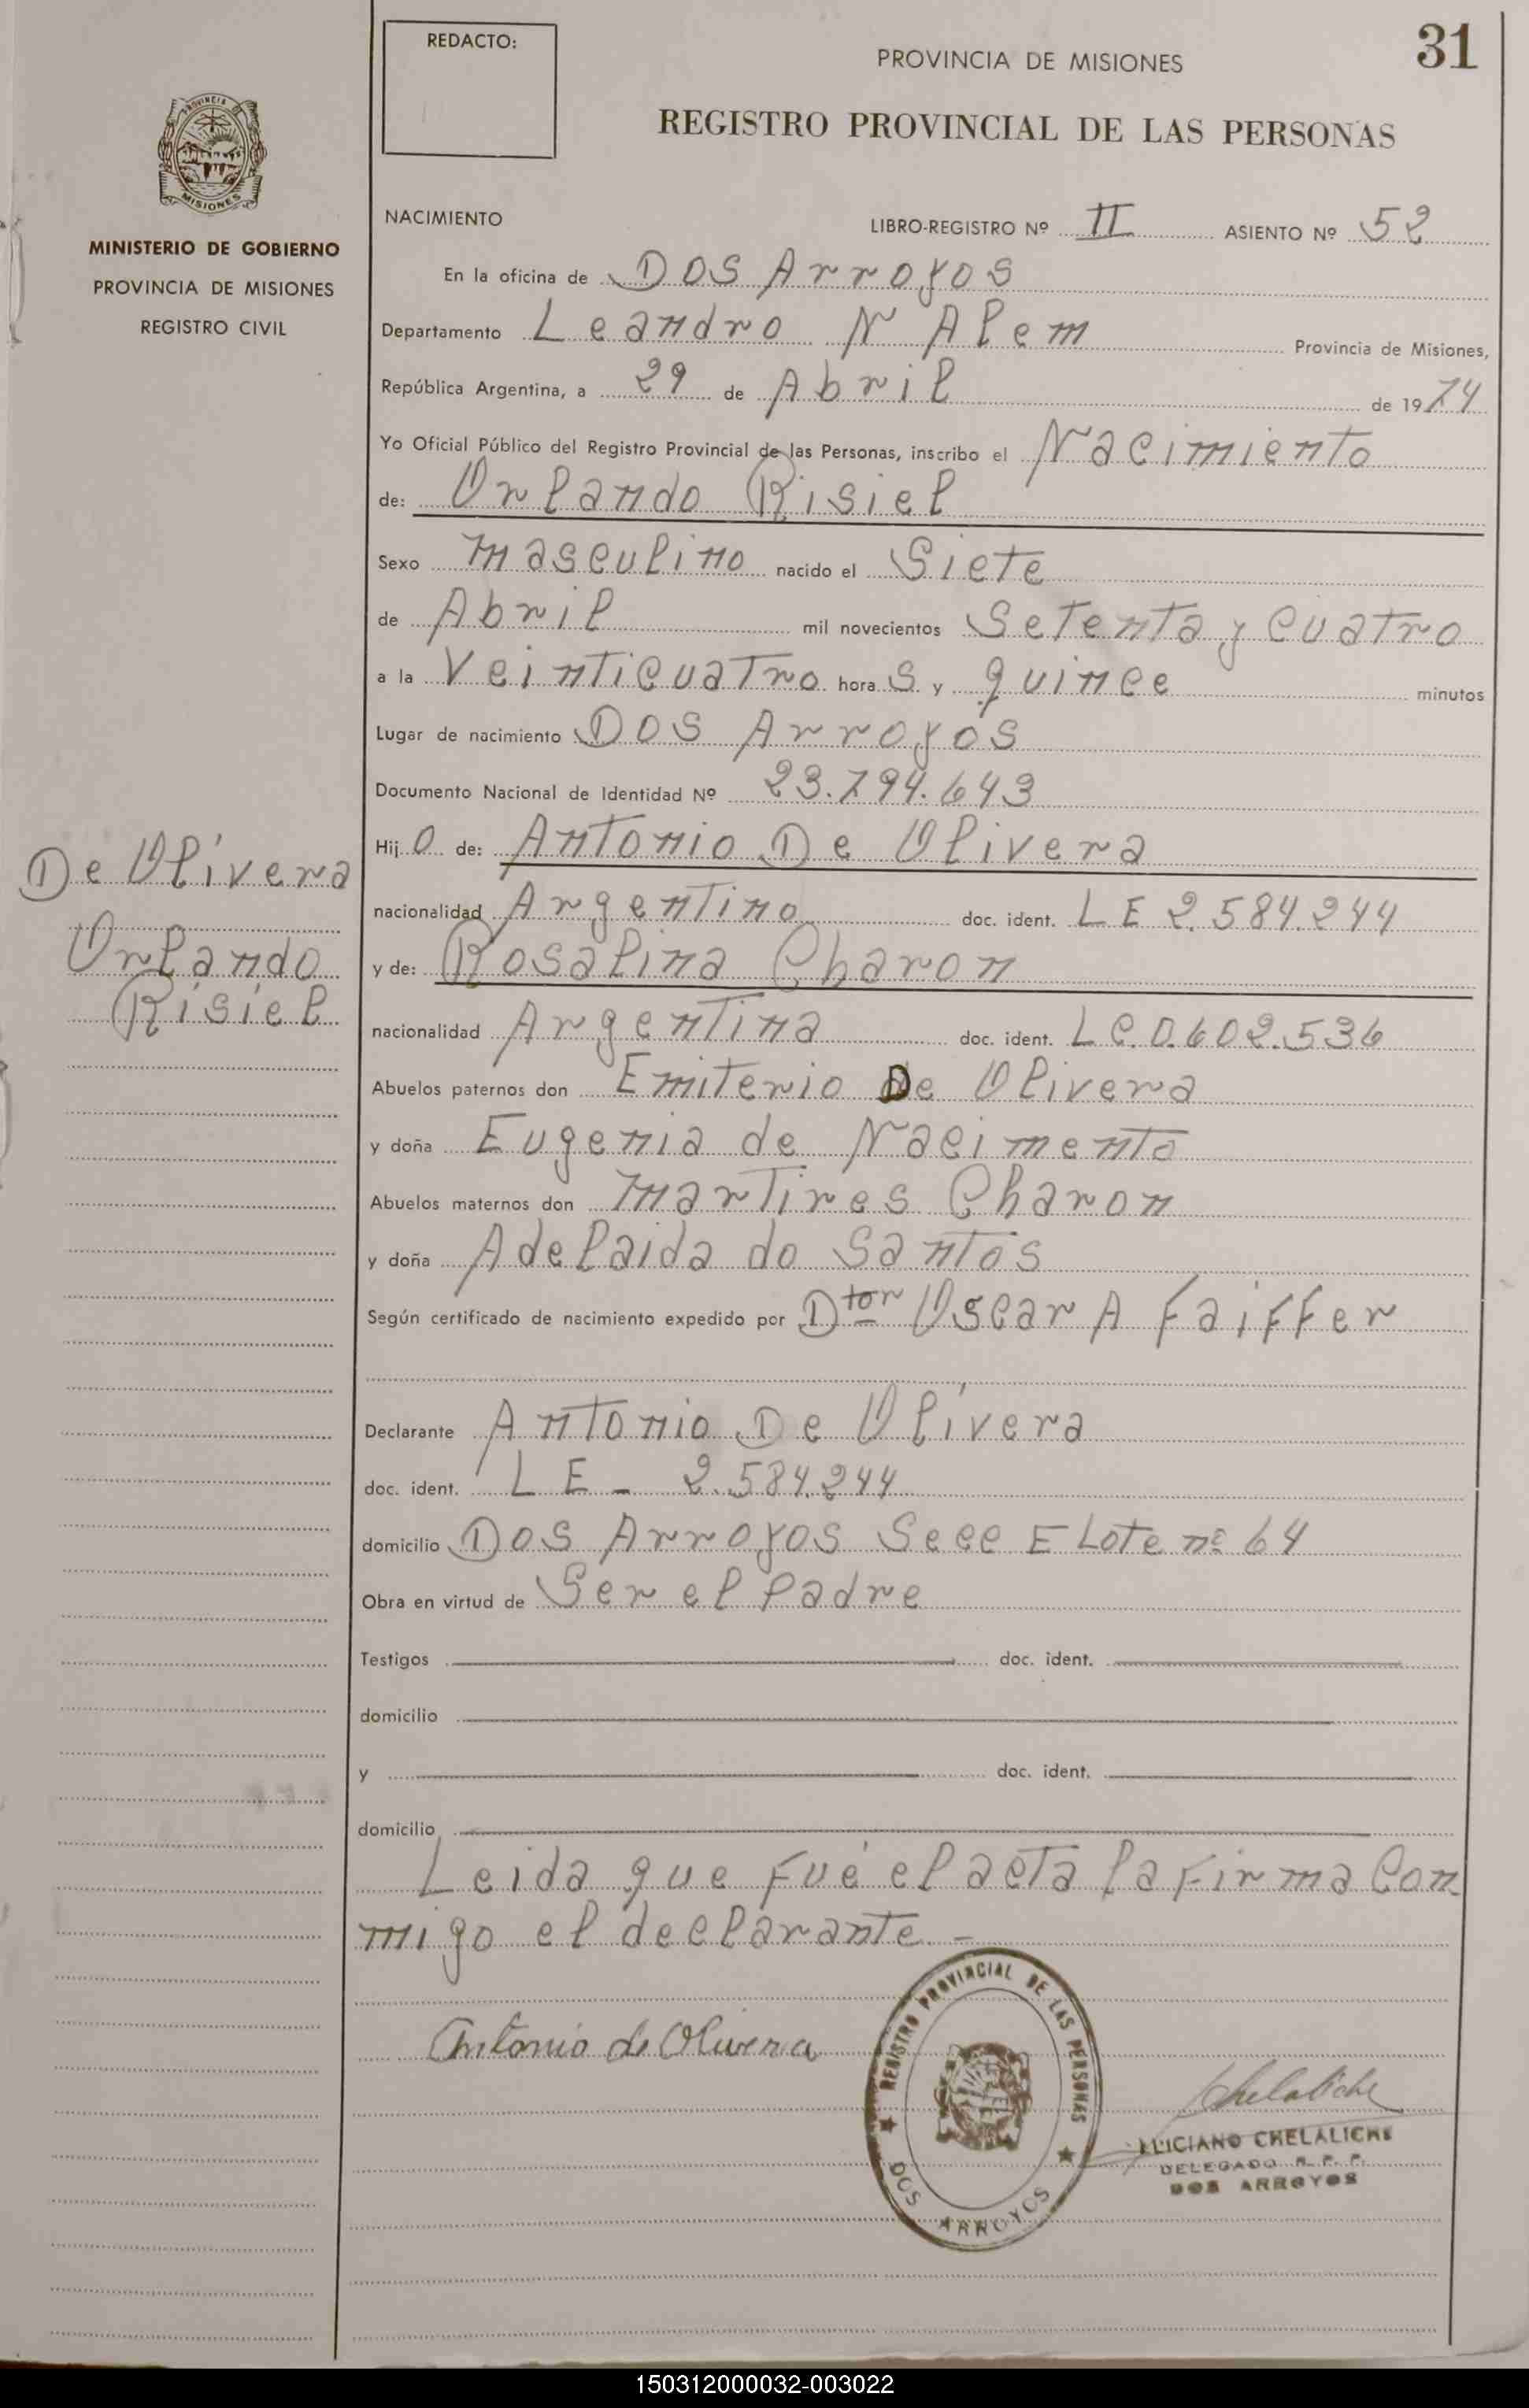 REDACTO:
PROVINCIA DE MISIONES
31
REGISTRO PROVINCIAL DE LAS PERSONAS
PROVINCIA DE
MISIONES
MINISTERIO DE GOBIERNO
PROVINCIA DE MISIONES
REGISTRO CIVIL
NACIMIENTO LIBRO-REGISTRO Nº II ASIENTO Nº 52
En la oficina de Dos Arroyos
Departamento Leandro N Alem Provincia de Misiones,
República Argentina, a 29 de Abril de 1974
Yo Oficial Público del Registro Provincial de las Personas, inscribo el Nacimiento
de: Orlando Risiel
Sexo masculino nacido el Siete
de Abril mil novecientos Setenta y cuatro
a la Veinticuatro hora S y quince minutos
Lugar de nacimiento Dos Arroyos
Documento Nacional de Identidad Nº 23.794.643
Hij o de: Antonio De Olivera
De Olívera
Orlando
Risiel
nacionalidad Argentino doc. ident. LE 2.584.244
y de: Rosalina Charon
nacionalidad Argentina doc. ident. LC.0.602.536
Abuelos paternos don Emiterio De Olivera
y doña Eugenia de Nacimento
Abuelos maternos don Martires Charon
y doña Adelaida do Santos
Según certificado de nacimiento expedido por Dtor Oscar A Faiffer
Declarante Antonio De Olívera
doc. ident. LE - 2.584.244
domicilio Dos Arroyos Secc E Lote nº 64
Obra en virtud de Ser el Padre
Testigos doc. ident.
domicilio
y doc. ident.
domicilio
Leida que fué el acta la firma Con
migo el declarante -
Antonio de Olivera
REGISTRO PROVINCIAL DE LAS PERSONAS
DOS ARROYOS
Chelaliche
LUCIANO CHELALICHE
DELEGADO R. P. P.
DOS ARROYOS
150312000032-003022